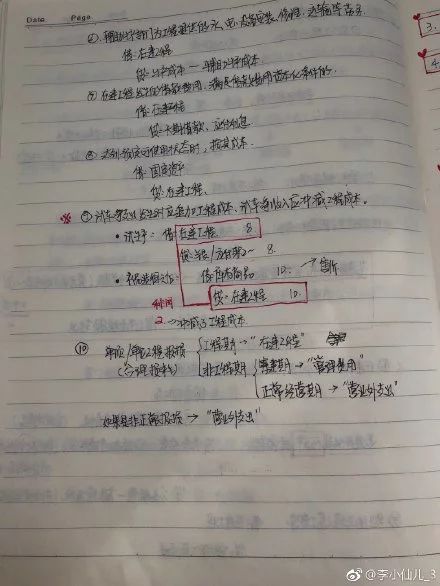 Date Page
3.
4
⑥ 辅助生产部门为工程提供的水、电、设备安装、修理、运输等劳务
借:在建工程
贷:生产成本—辅助生产成本
⑦ 在建工程发生的借款费用,满足借款费用资本化条件的
借:在建工程
贷:长期借款、应付利息
⑧ 达到预定可使用状态时,按其成本
借:固定资产
贷:在建工程
※ ⑨ 试车 发生 工程成本、试车 收入 冲减工程成本。
• 试生产: 借:在建工程 8
贷:银行 8.
• 借:库存商品 10.
贷:在建工程 10.
2. → 冲减了工程成本
⑩ 单项/单位工程报损 工程期 → “在建工程”
非工程期 筹建期 → “管理费用”
正常经营期 → “营业外支出”
如果是非正常报损 → “营业外支出”
@李小仙儿_3